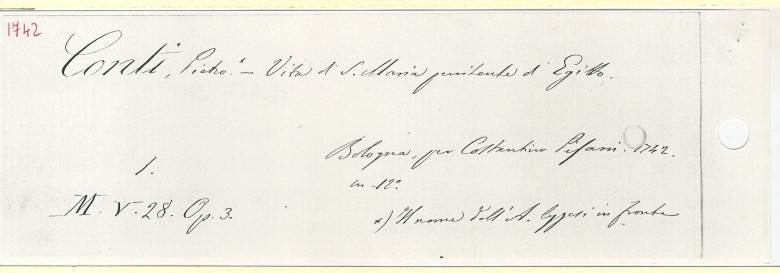 1742
Conti, Pietro.* — Vita di S. Maria penitente d'Egitto.
Bologna, per Costantino Pisarri. 1742.
in-12º
1.
M. V. 28. Op. 3.
*) Il nome dell'A. leggesi in fronte